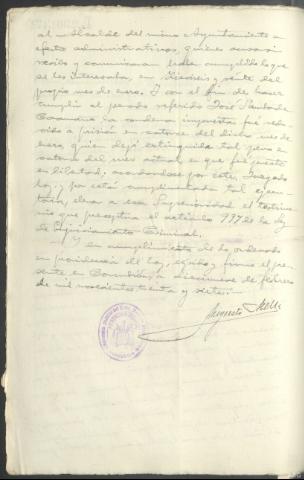 al Alcalde del mismo Ayuntamiento a
efectos administrativos, quienes acusaron
recibo y comunicaron haber cumplido lo que
se les interesaba, en dieciseis y veinte del
propio mes de enero. Y con el fin de hacer
cumplir al penado referido José
la condena impuesta fué
a prisión en catorce del dicho mes de
enero, quien dejó extinguida tal pena en
catorce del mes actual, en que fué puesto
en libertad; acordandose por este Juzgado
hoy, y por estar cumplimentada tal ejecu-
toria, elevar a esa Superioridad el testimo-
nio que preceptua el artículo 997 de la Ley
de Enjuiciamiento Criminal.
Y en cumplimiento de lo ordenado
en providencia de hoy, expido y firmo el pre-
sente en a diecinueve de febrero
de mil novecientos treinta y siete.
Augusto